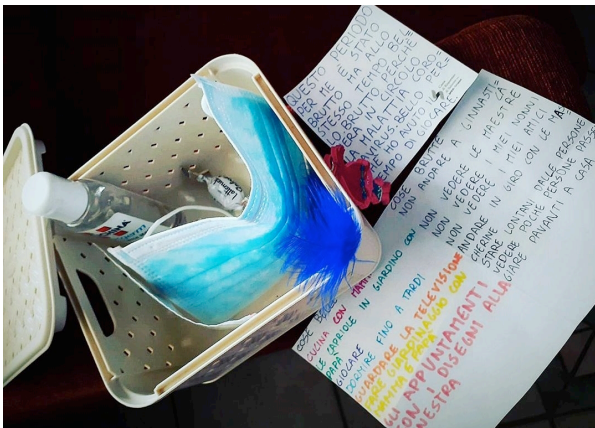 QUESTO PERIODO
PER ME È STATO
BRUTTO MA ALLO
STESSO TEMPO BEL=
BRUTTO PERCHÈ
C'ERA IN CIRCOLO
MALATTIA CORO=
VIRUS. BELLO PER=
HO AVUTO IL
TEMPO DI GIOCARE
COSE BRUTTE
NON ANDARE A GINNASTICA
NON VEDERE LE MAESTRE
NON VEDERE I MIEI NONNI
NON VEDERE I MIEI AMICI
ANDARE IN GIRO CON LE MAS=
CHERINE
STARE LONTANI DALLE PERSONE
VEDERE POCHE PERSONE PASSE=
GIARE DAVANTI A CASA
COSE BELLE
CUCINA CON MAMMA
LE CAPRIOLE IN GIARDINO CON
PAPÀ
GIOCARE
DORMIRE FINO A TARDI
GUARDARE LA TELEVISIONE
FARE GIARDINAGGIO CON
MAMMA E PAPÀ
GLI APPUNTAMENTI
CON I DISEGNI ALLA
NESTRA